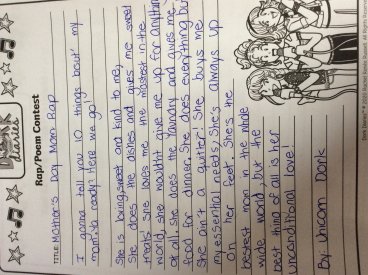 DORK
diaries
Rap/Poem Contest
TITLE: Mother's Day Mom Rap
I gonna tell you 10 things bout my
mama ready! Here we go!
She is loving, sweet and kind to me,
She does the dishes and gives me sweet
treats she loves me the mostest in the
world, she wouldn't give me up for anything
at all. She does the laundry and gives me
food for dinner. She does everything but
She ain't a quitter! She buys me
my essential needs, She's always up
on her feet. She's the
bestest mom in the whole
wide world, but the
best thing of all is her
unconditional love!
By Unicorn Dork